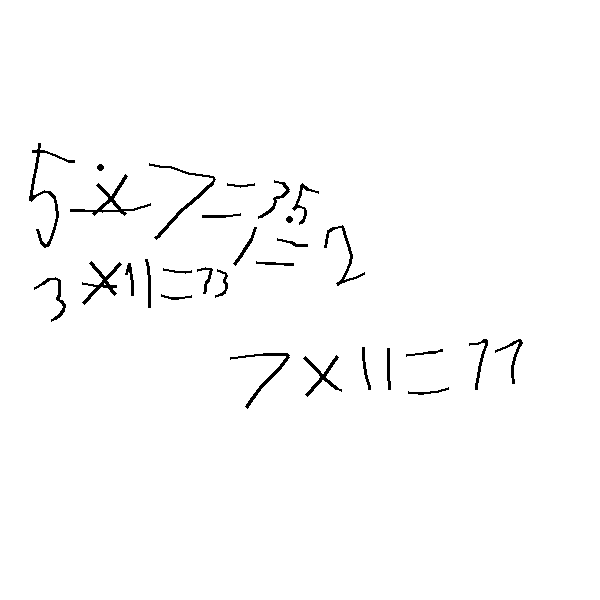 5 × 7 = 35
3 × 11 = 33
7 × 11 = 77